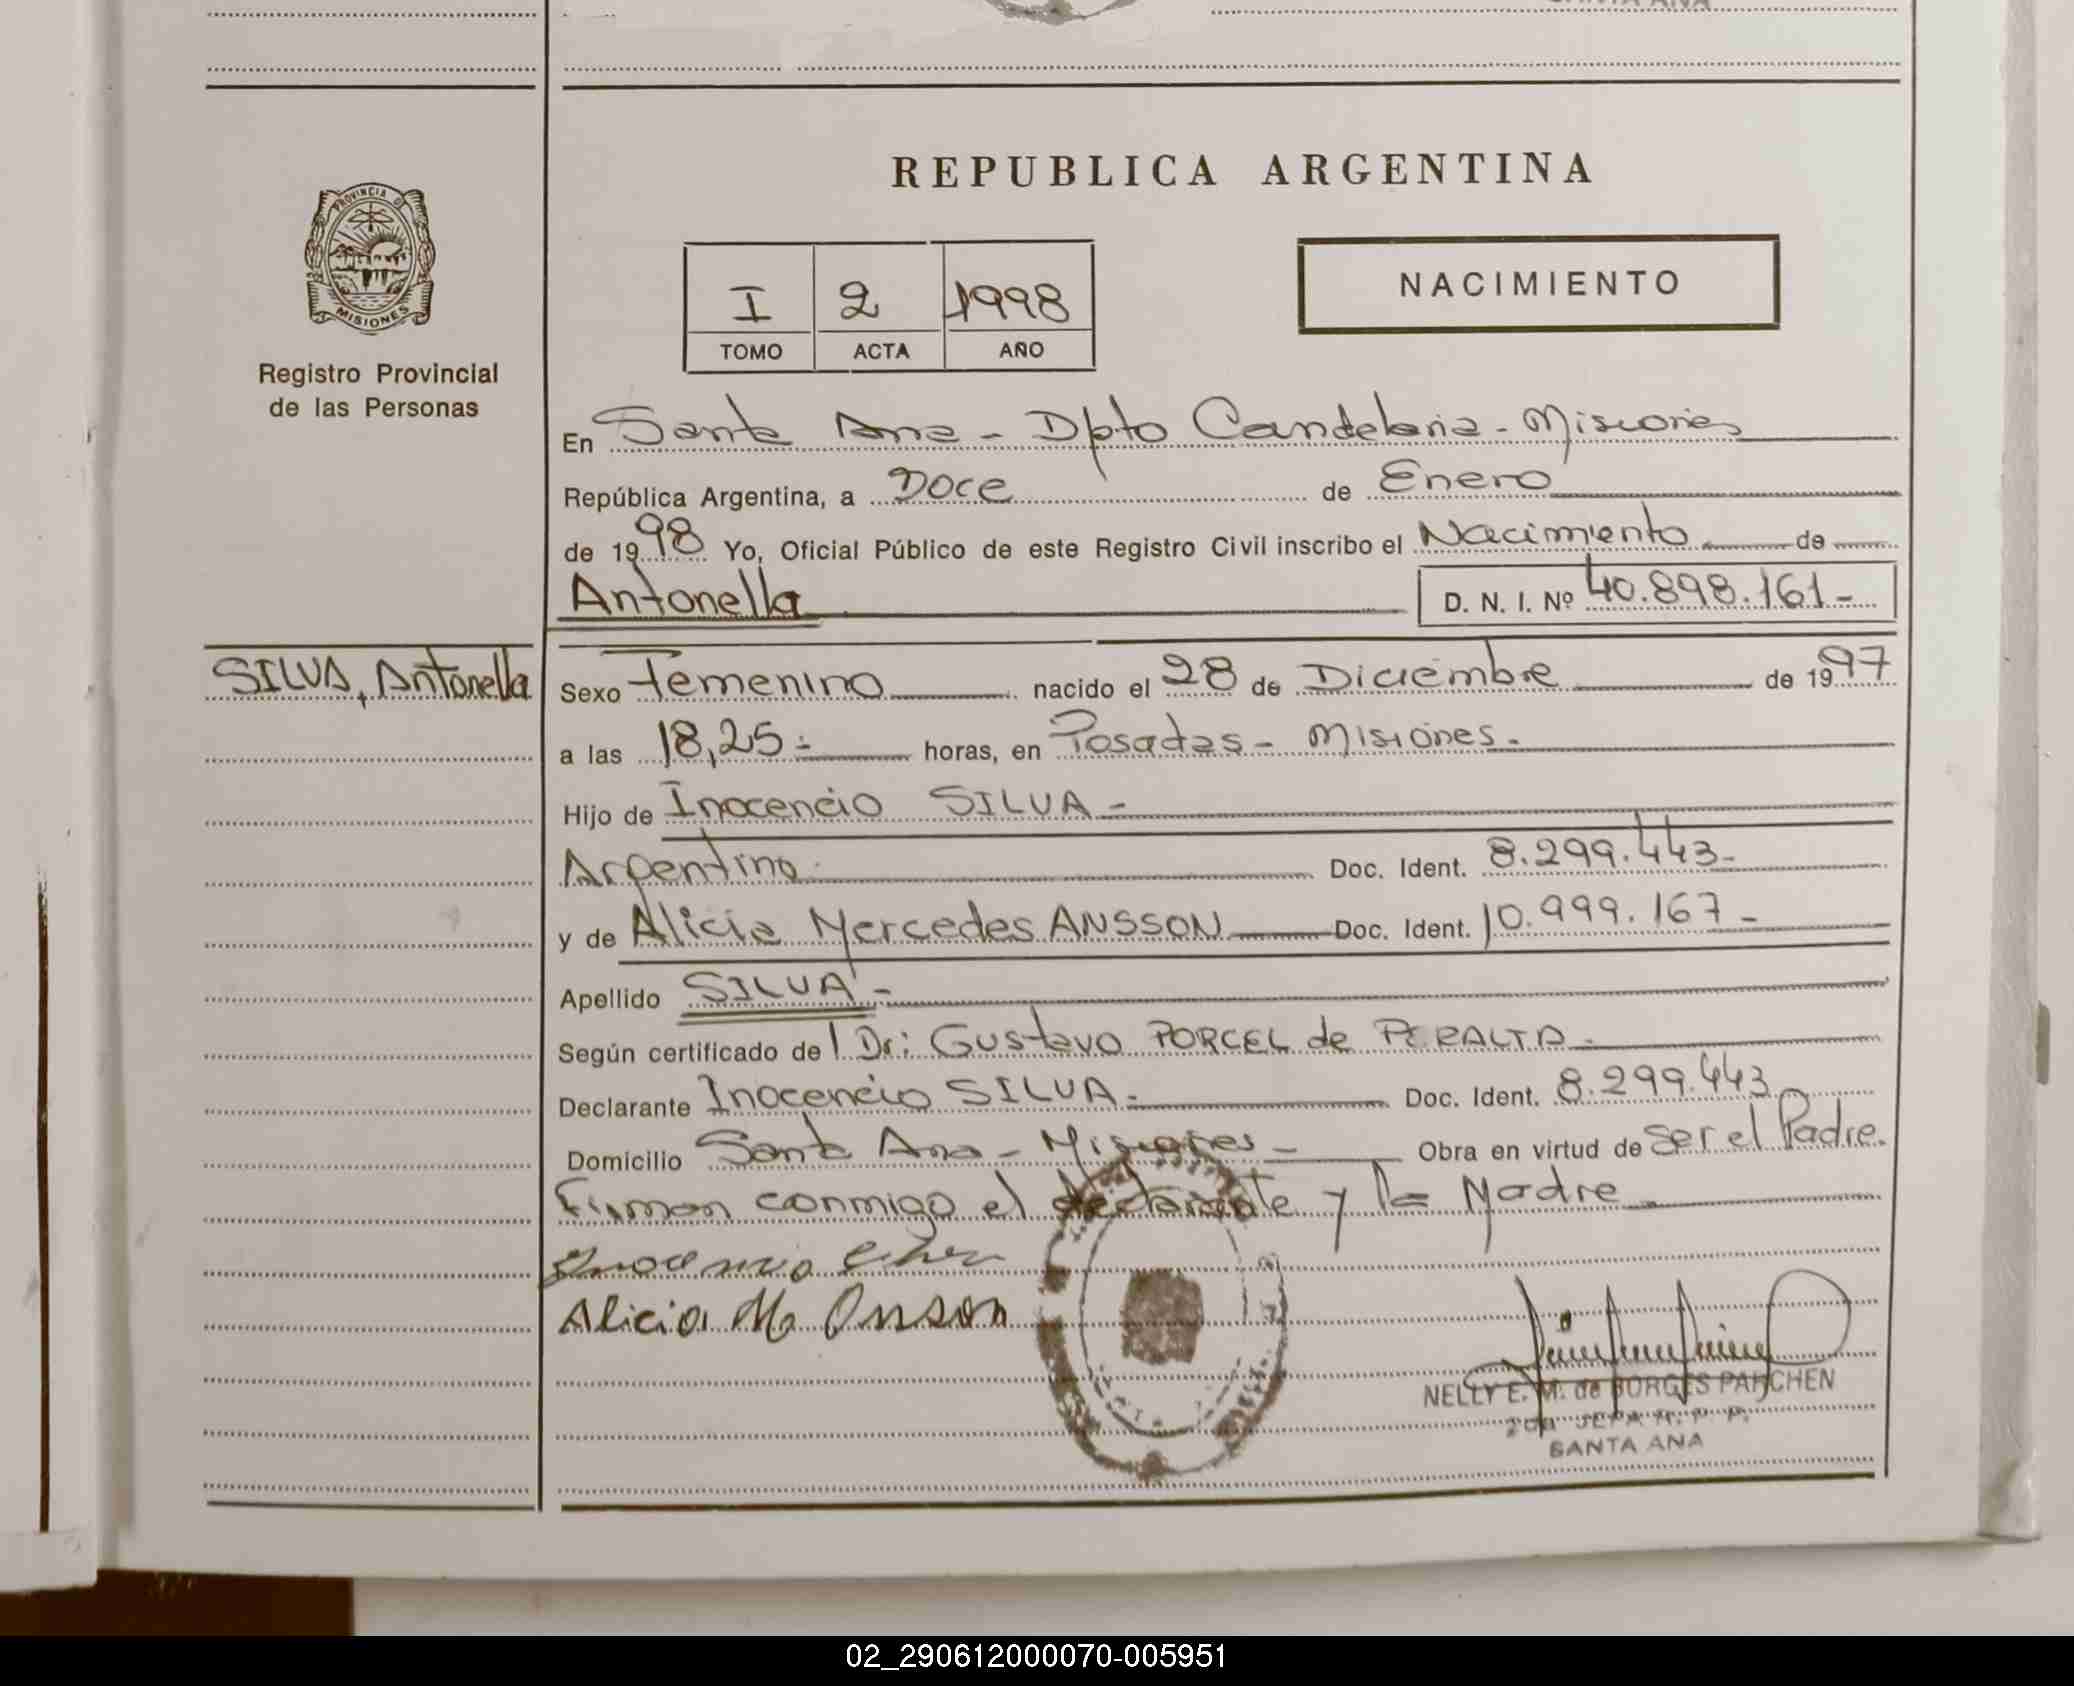 REPUBLICA ARGENTINA
PROVINCIA DE
MISIONES
Registro Provincial
de las Personas
I 2 1998
TOMO ACTA AÑO
NACIMIENTO
En Santa Ana - Dpto Candelaria - Misiones
República Argentina, a Doce de Enero
de 1998 Yo, Oficial Público de este Registro Civil inscribo el Nacimiento de
Antonella D. N. I. Nº 40.898.161-
SILVA, Antonella
Sexo Femenino nacido el 28 de Diciembre de 1997
a las 18,25 horas, en Posadas - Misiones.
Hijo de Inocencio SILVA -
Argentino Doc. Ident. 8.299.443-
y de Alicia Mercedes ANSSON Doc. Ident. 10.999.167-
Apellido SILVA -
Según certificado del Dr: Gustavo PORCEL de PERALTA -
Declarante Inocencio SILVA - Doc. Ident. 8.299.443
Domicilio Santa Ana - Misiones - Obra en virtud de ser el Padre.
Firman conmigo el declarante y la Madre
Alicia M Onson
NELLY E. M. de BORGES PARCHEN
JEFA R. P. P.
SANTA ANA
02_290612000070-005951